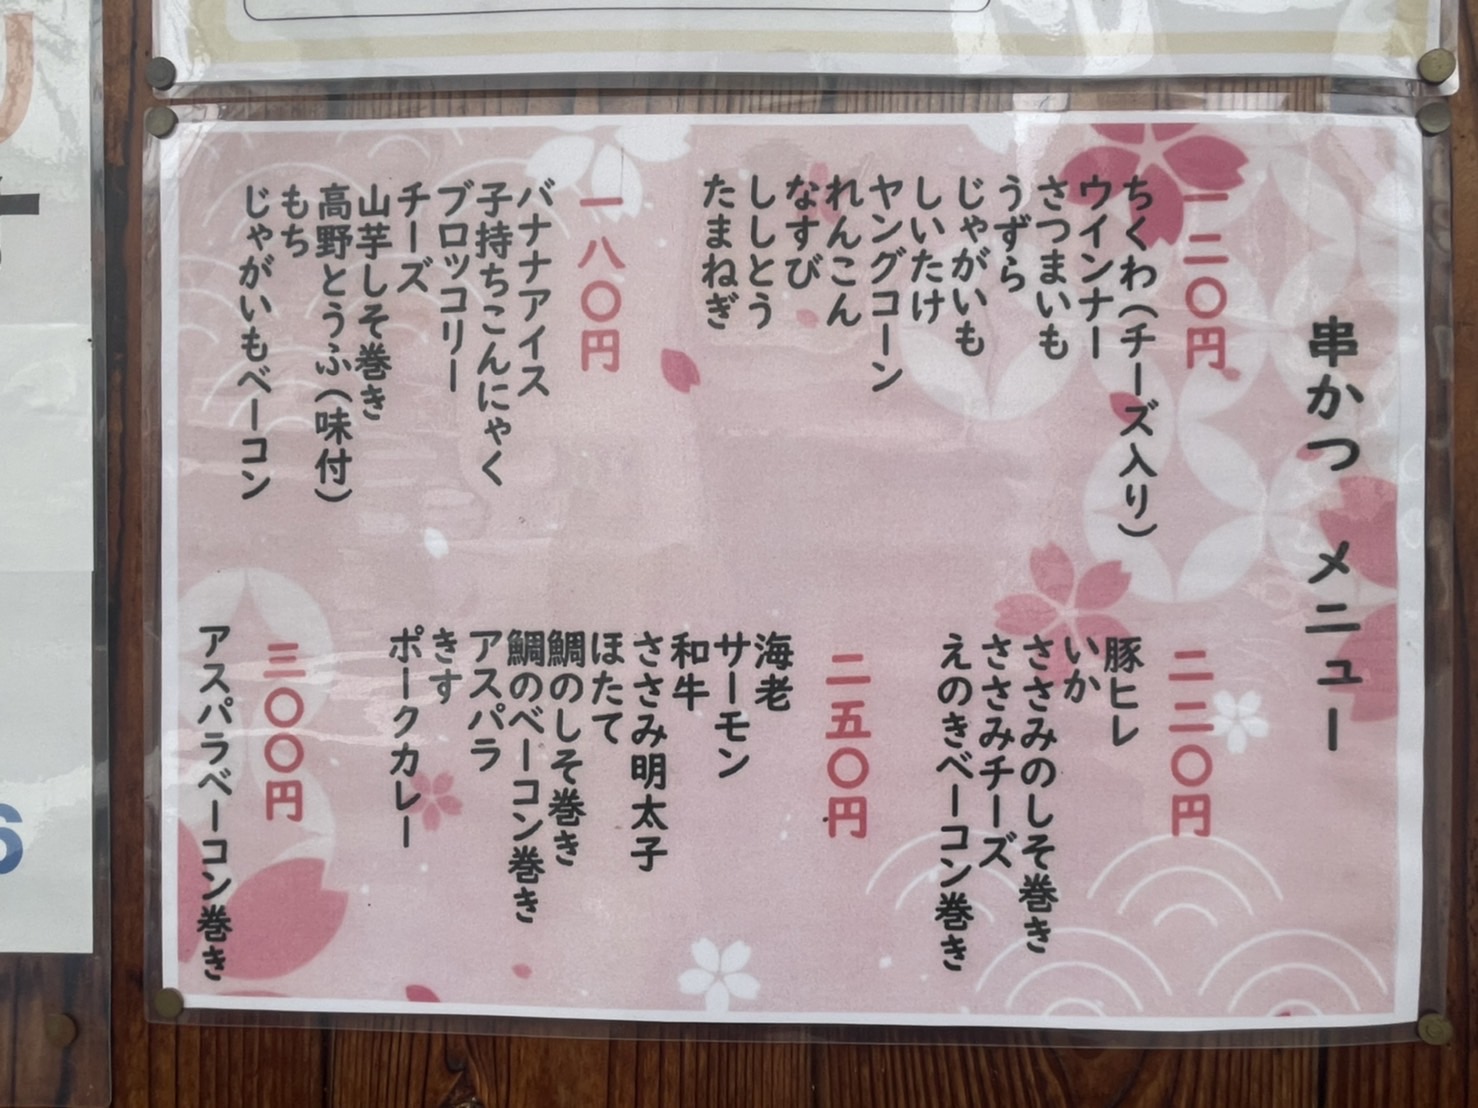 串かつ メニュー
一二〇円
ちくわ（チーズ入り）
ウインナー
さつまいも
うずら
じゃがいも
しいたけ
ヤングコーン
れんこん
なすび
ししとう
たまねぎ
一八〇円
バナナアイス
子持ちこんにゃく
ブロッコリー
チーズ
山芋しそ巻き
高野とうふ（味付）
もち
じゃがいもベーコン
二二〇円
豚ヒレ
いか
ささみのしそ巻き
ささみチーズ
えのきベーコン巻き
二五〇円
海老
サーモン
和牛
ささみ明太子
ほたて
鯛のしそ巻き
鯛のベーコン巻き
アスパラ
きす
ポークカレー
三〇〇円
アスパラベーコン巻き